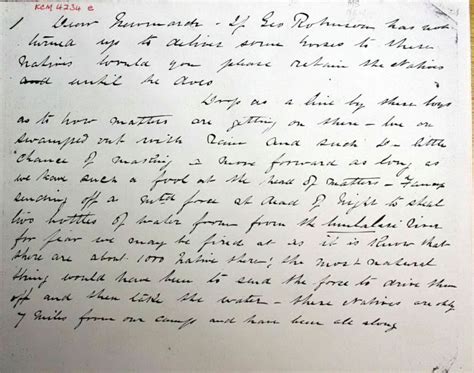 KCM 4234 c
1 Dear Newmarch - If Geo Robinson has not
turned up to deliver some horses to these
Natives would you please retain the Natives
and until he does
Drop us a line by these boys
as to how matters are getting on there - we are
swamped out with rain and such &- little
chance of making a move forward as long as
we have such a fool at the head of matters - Fancy
sending off a force at dead of night to
two bottles of water from from the river
for fear we may be fired at as it is know that
there are about 1000 Native there; the most natural
thing would have been to send the force to drive them
off and then take the water - these Natives are only
7 miles from our camp and have been all along